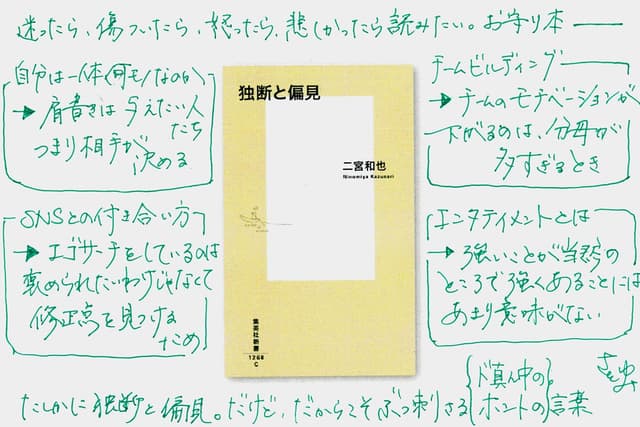 迷ったら、傷ついたら、怒ったら、悲しかったら読みたい。お守り本——
自分は一体何モノなのか
→肩書きは与えたい人たち
つまり相手が
決める
チームビルディング
→チームのモチベーションが
下がるのは、分母が
多すぎるとき
独断と偏見
二宮和也
Ninomiya Kazunari
集英社新書
1268
C
SNSとの付き合い方
→エゴサーチをしているのは
褒められたいわけじゃなくて
修正点を見つける
ため
エンタテイメントとは
→強いことが当然の
ところで強くあることには
あまり意味がない
さとゆみ
たしかに独断と偏見。だけど、だからこそぶっ刺さる
ド真ん中の
ホントの言葉